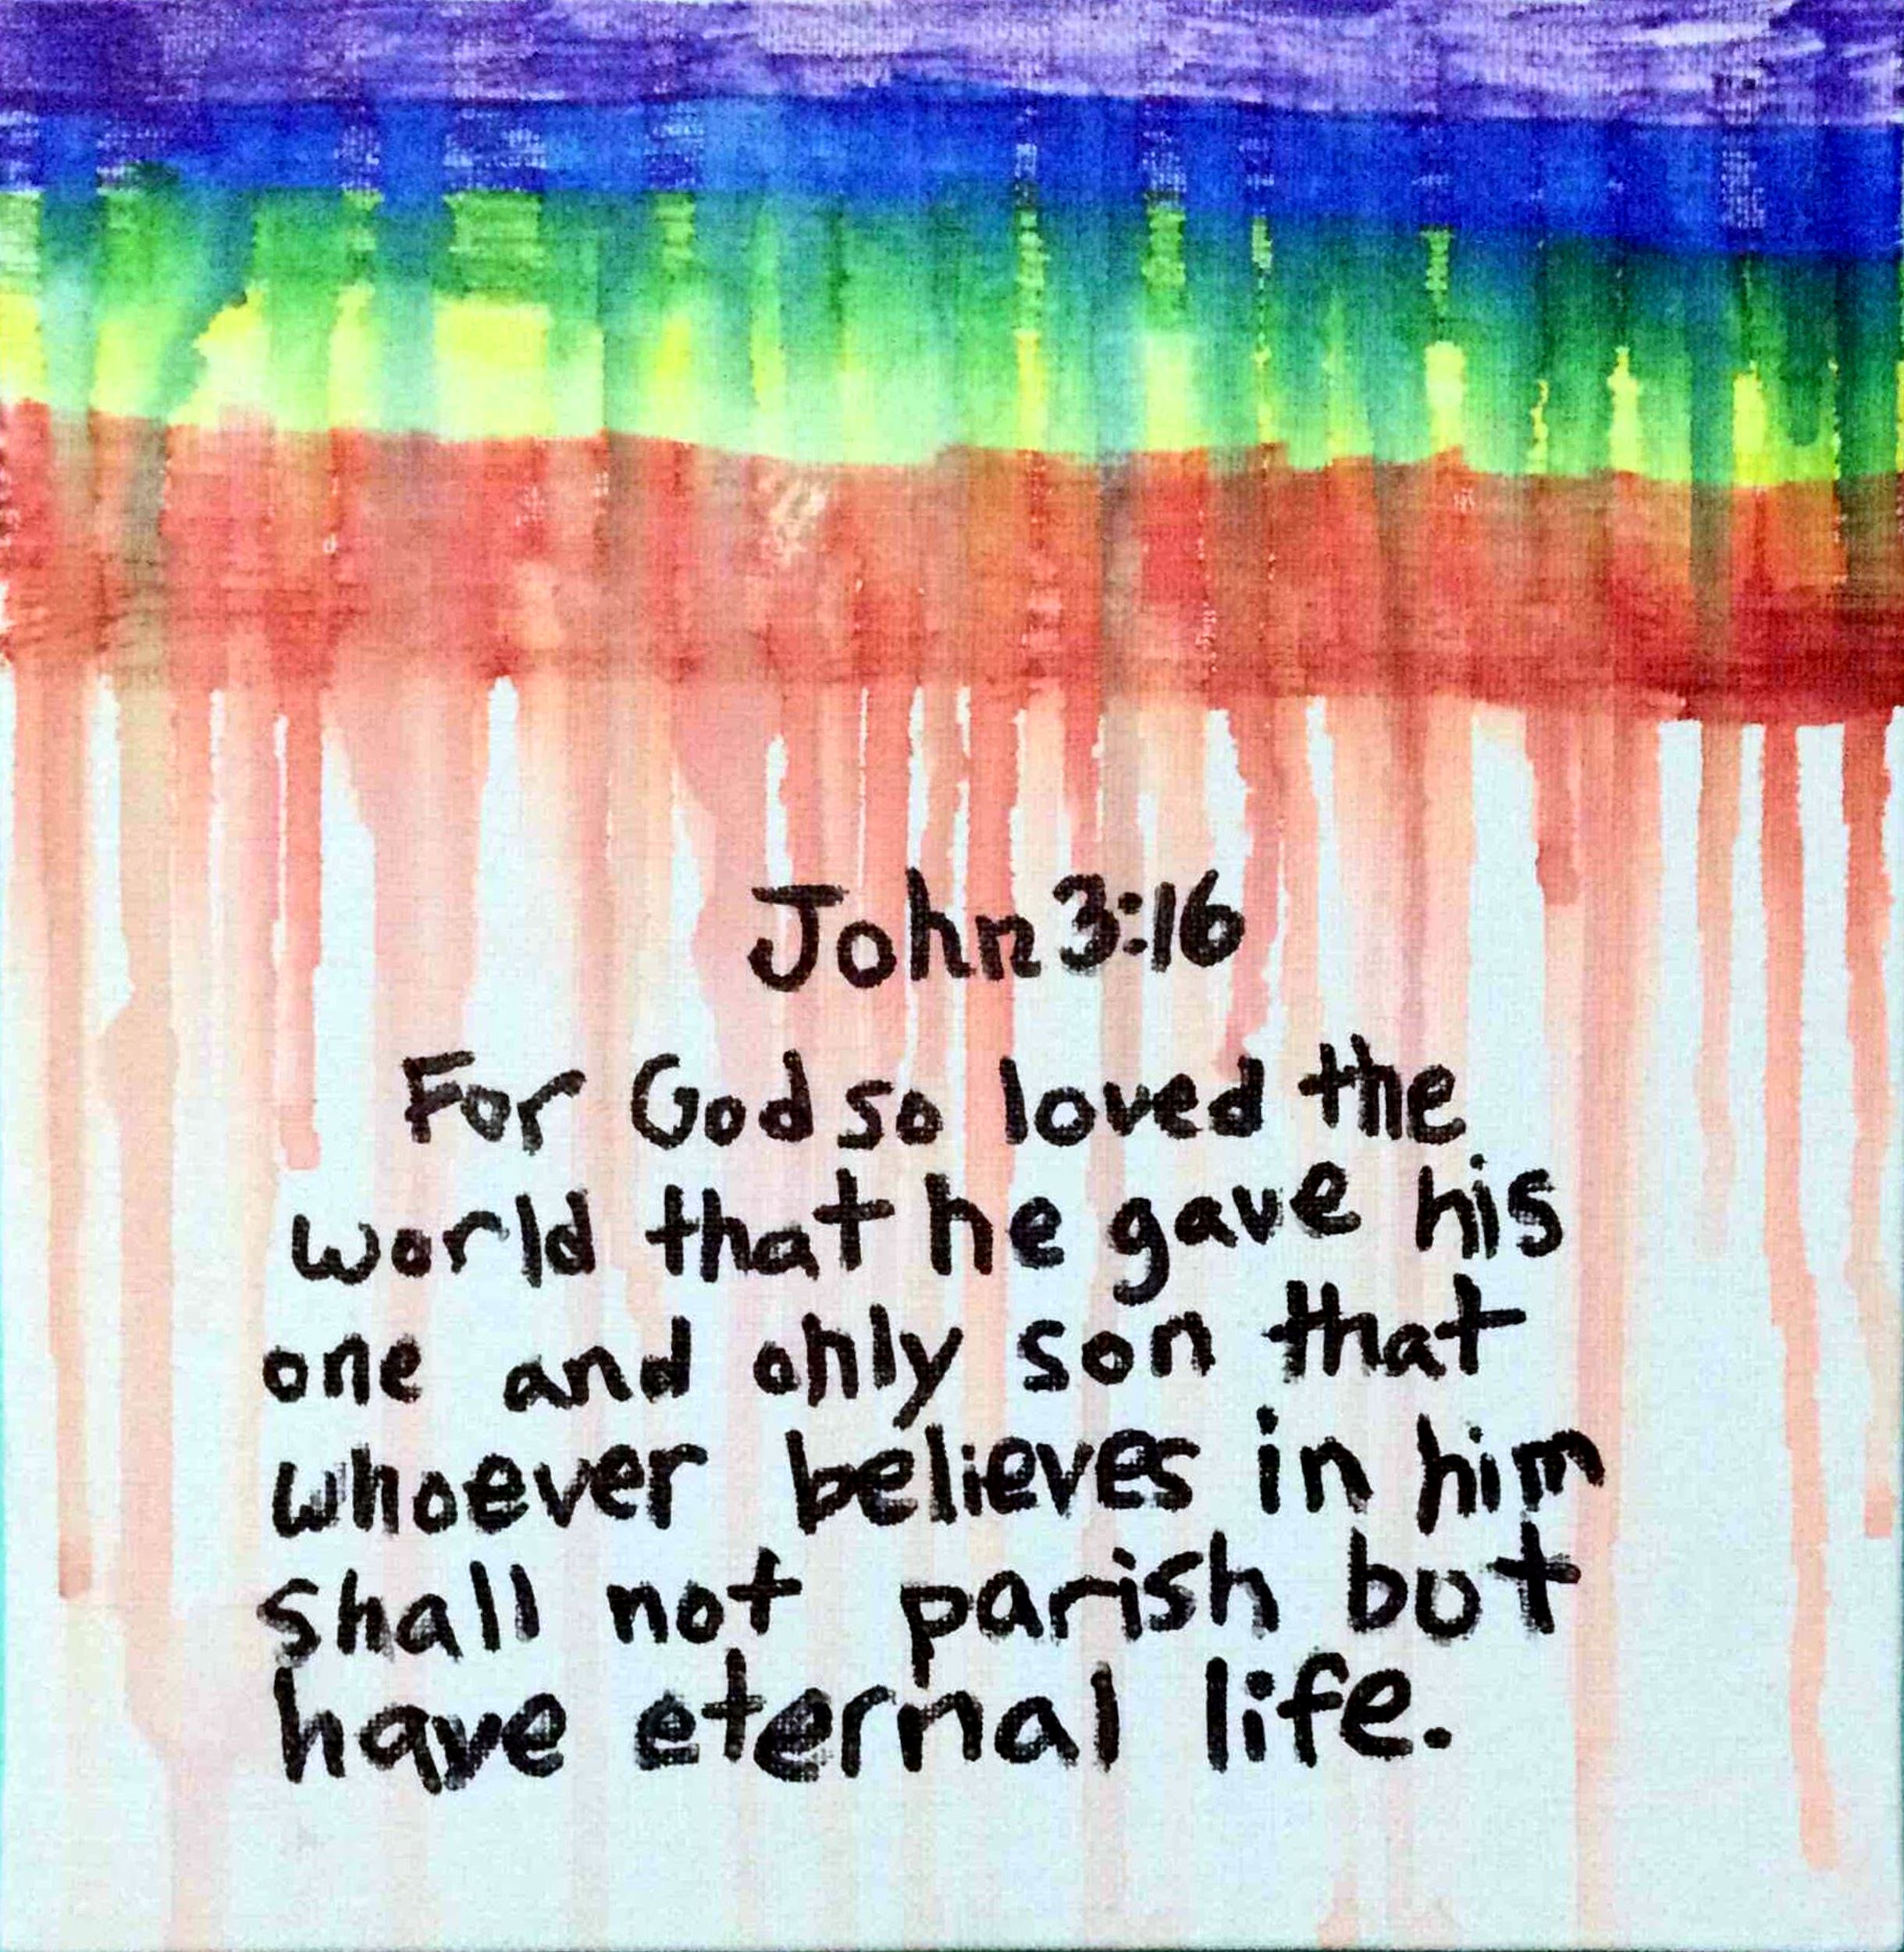 John 3:16
For God so loved the
world that he gave his
one and only son that
whoever believes in him
shall not parish but
have eternal life.